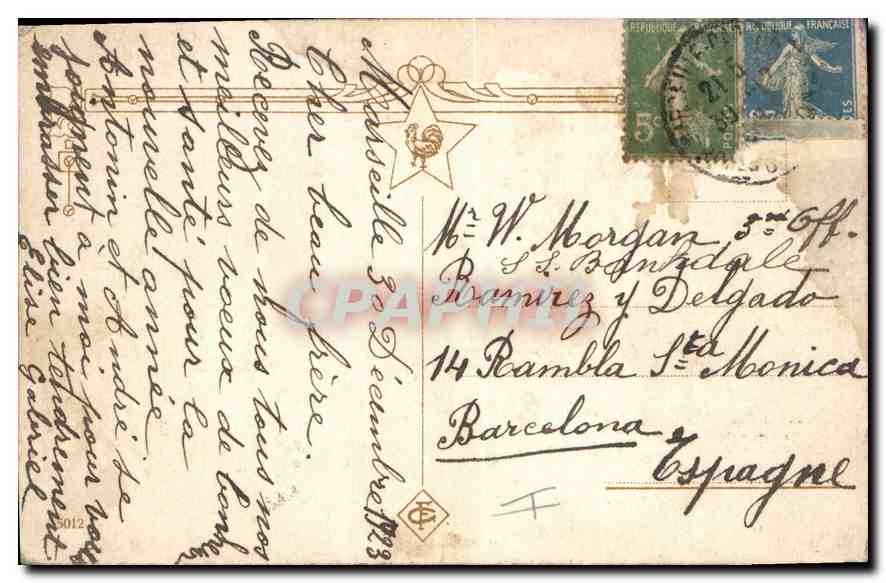 Marseille 30 Décembre 1923
Cher beau frère.
Recevez de nous tous nos
meilleurs voeux de bonheur
et santé pour la
nouvelle année
Antonin et André se
joignent à moi pour vous
embrasser bien tendrement
Elise Gabriel
Mr. W. Morgan 3nd Off.
S.S. Bankdale
Ramirez y Delgado
14 Rambla Sta Monica
Barcelona
Espagne
5012
5c
REPUBLIQUE
FRANÇAISE
POSTES
21
CPAPHIL